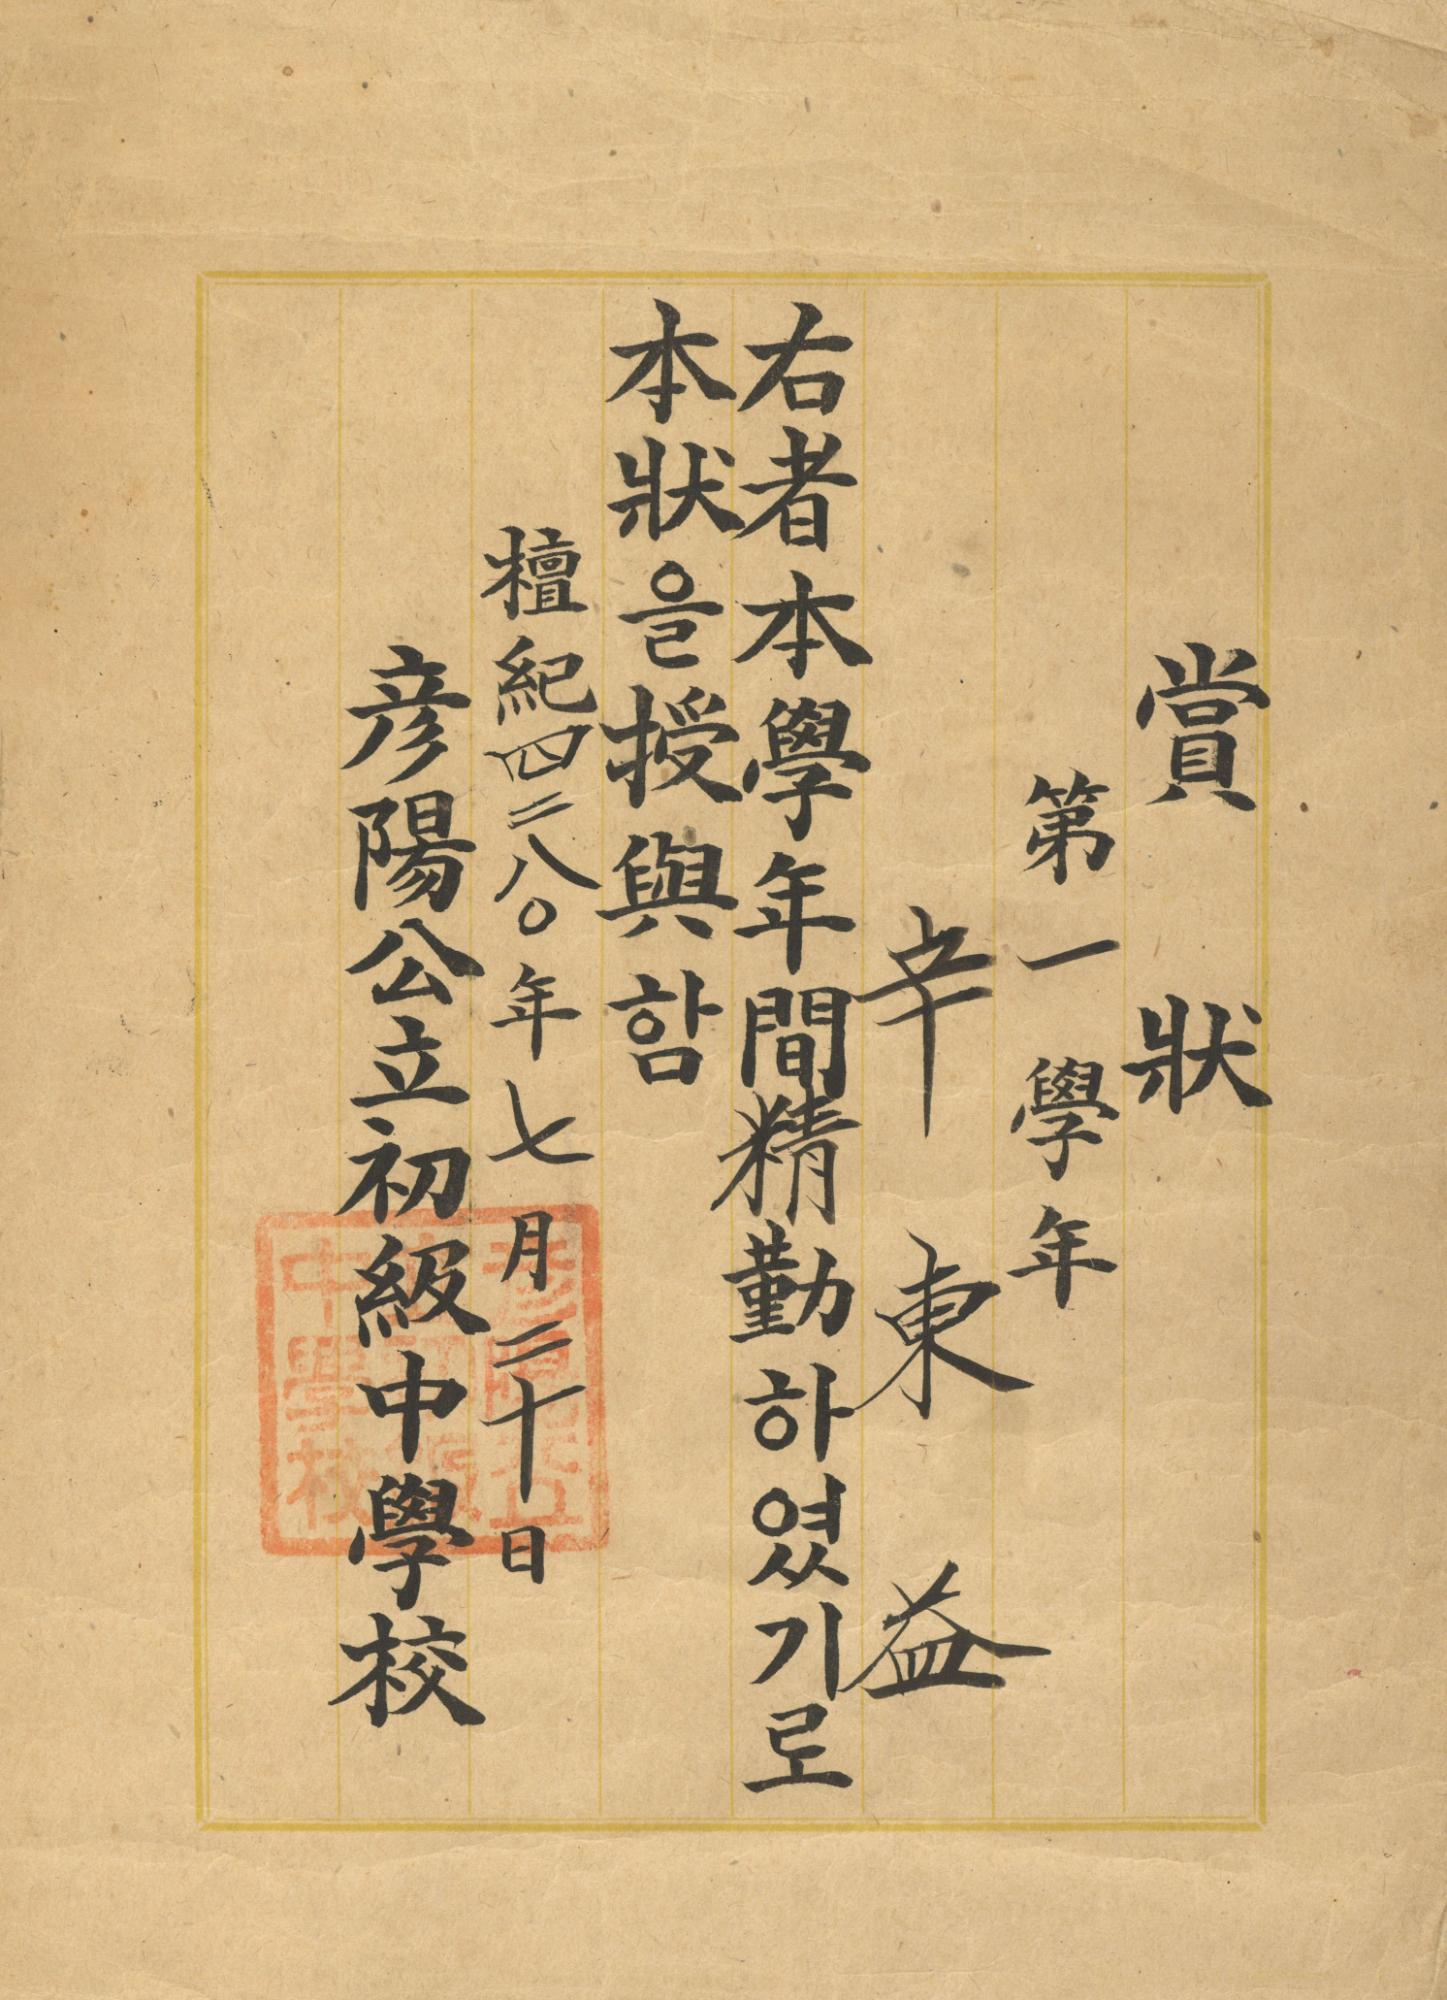 賞狀
第一學年
辛東益
右者本學年間精勤하였기로
本狀을授與함
檀紀四二八〇年七月二十日
彦陽公立初級中學校
彦陽公立初級中學校